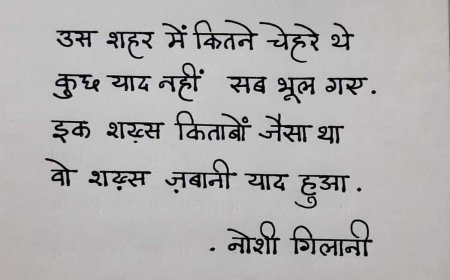 उस शहर में कितने चेहरे थे
कुछ याद नहीं सब भूल गए.
इक शख़्स किताबों जैसा था
वो शख़्स ज़बानी याद हुआ.
. नोशी गिलानी